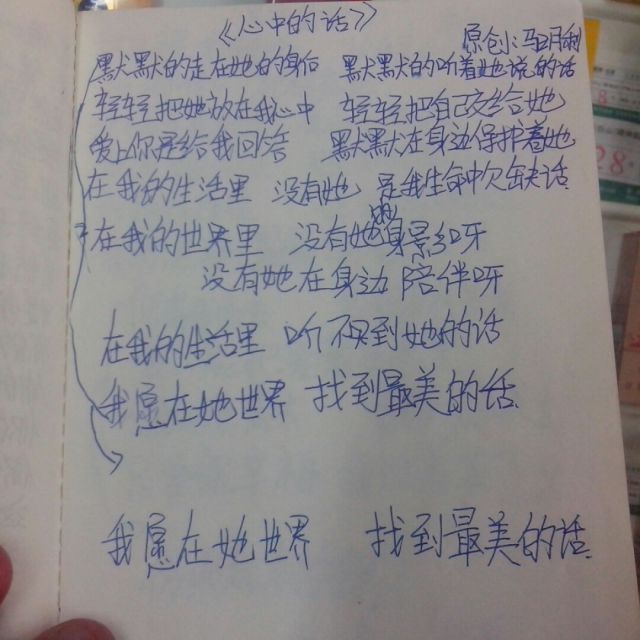 《心中的话》
原创:马明利
默默的走在她的身后 默默的听着她说的话
轻轻把她放在我心中 轻轻把自己交给她
爱上你是给我回答 默默在身边保护着她
在我的生活里 没有她 是我生命中欠缺话
在我的世界里 没有她的身影呀
没有她在身边 陪伴呀
在我的生活里 听不到她的话
我愿在她世界 找到最美的话.
我愿在她世界 找到最美的话.